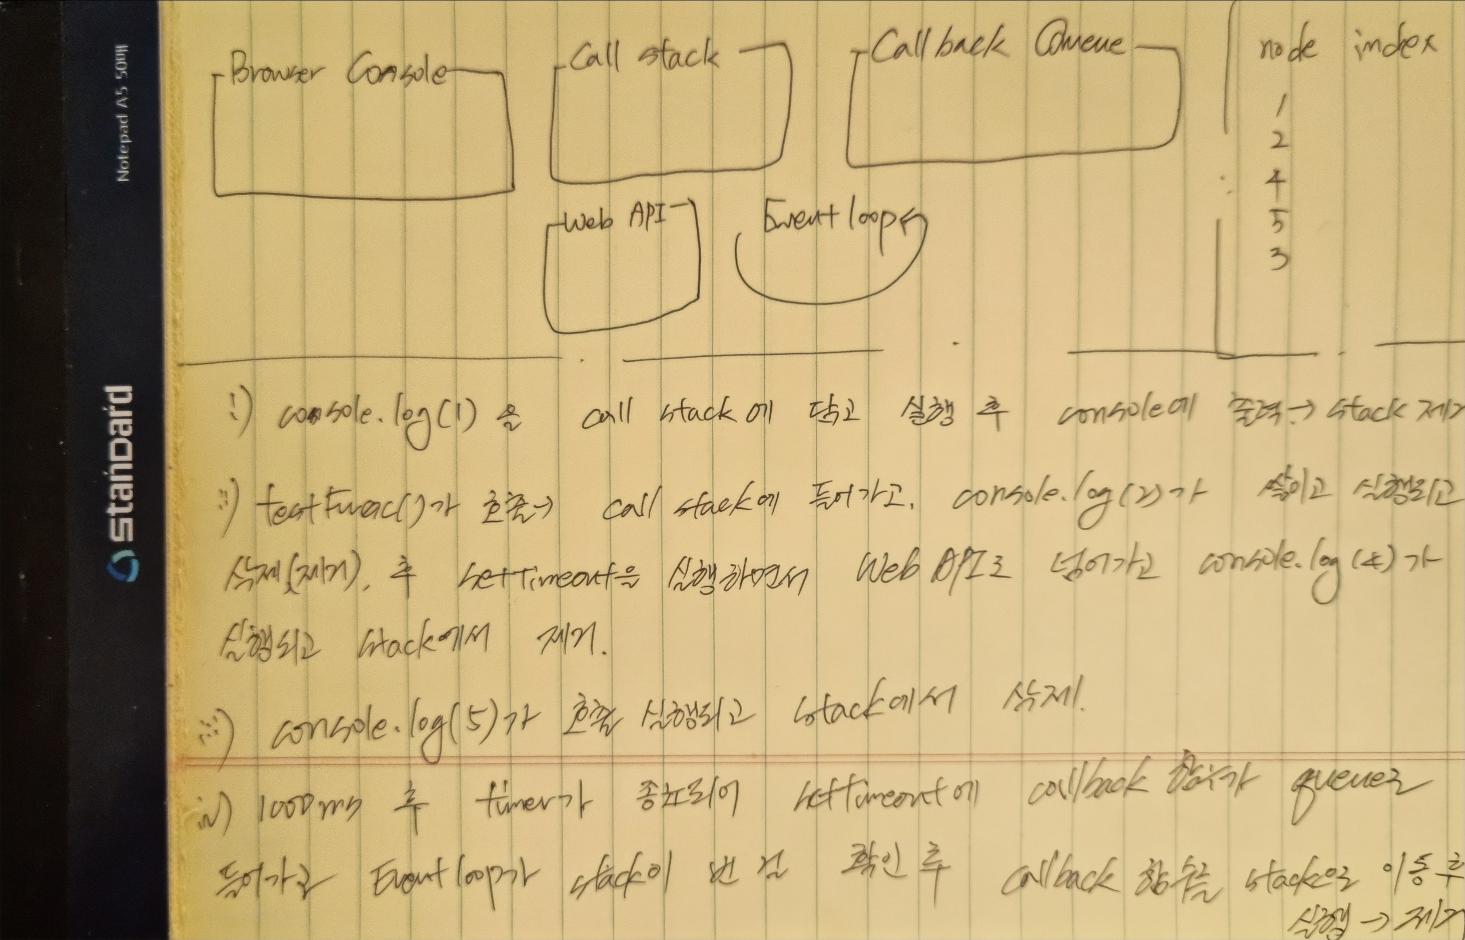 Notepad A5 50매
standard
Browser Console
Call stack
Callback Queue
node index
1
2
4
5
3
Web API
Event loop
i) console.log(1)을 call stack에 담고 실행 후 console에 출력 → stack 제거
ii) testFunc()가 호출 → call stack에 들어가고, console.log(2)가 쌓이고 실행되고
삭제(제거). 후 setTimeout을 실행하면서 Web API로 넘어가고 console.log(4)가
실행되고 stack에서 제거.
iii) console.log(5)가 호출 실행되고 stack에서 삭제.
iv) 1000ms 후 timer가 종료되어 setTimeout에 callback 함수가 queue로
들어가고 Event loop가 stack이 빈 걸 확인 후 callback 함수를 stack으로 이동 후
실행 → 제거